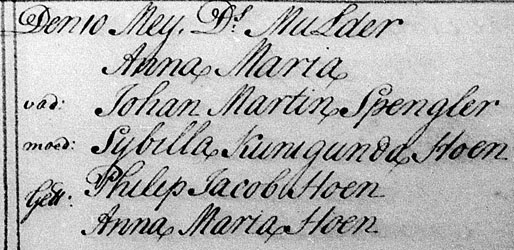 Den 10 Mey. Ds Mulder
Anna Maria
vad: Johan Martin Spengler
moed: Sybilla Kunigunda Hoen
Gett: Philip Jacob Hoen
Anna Maria Hoen